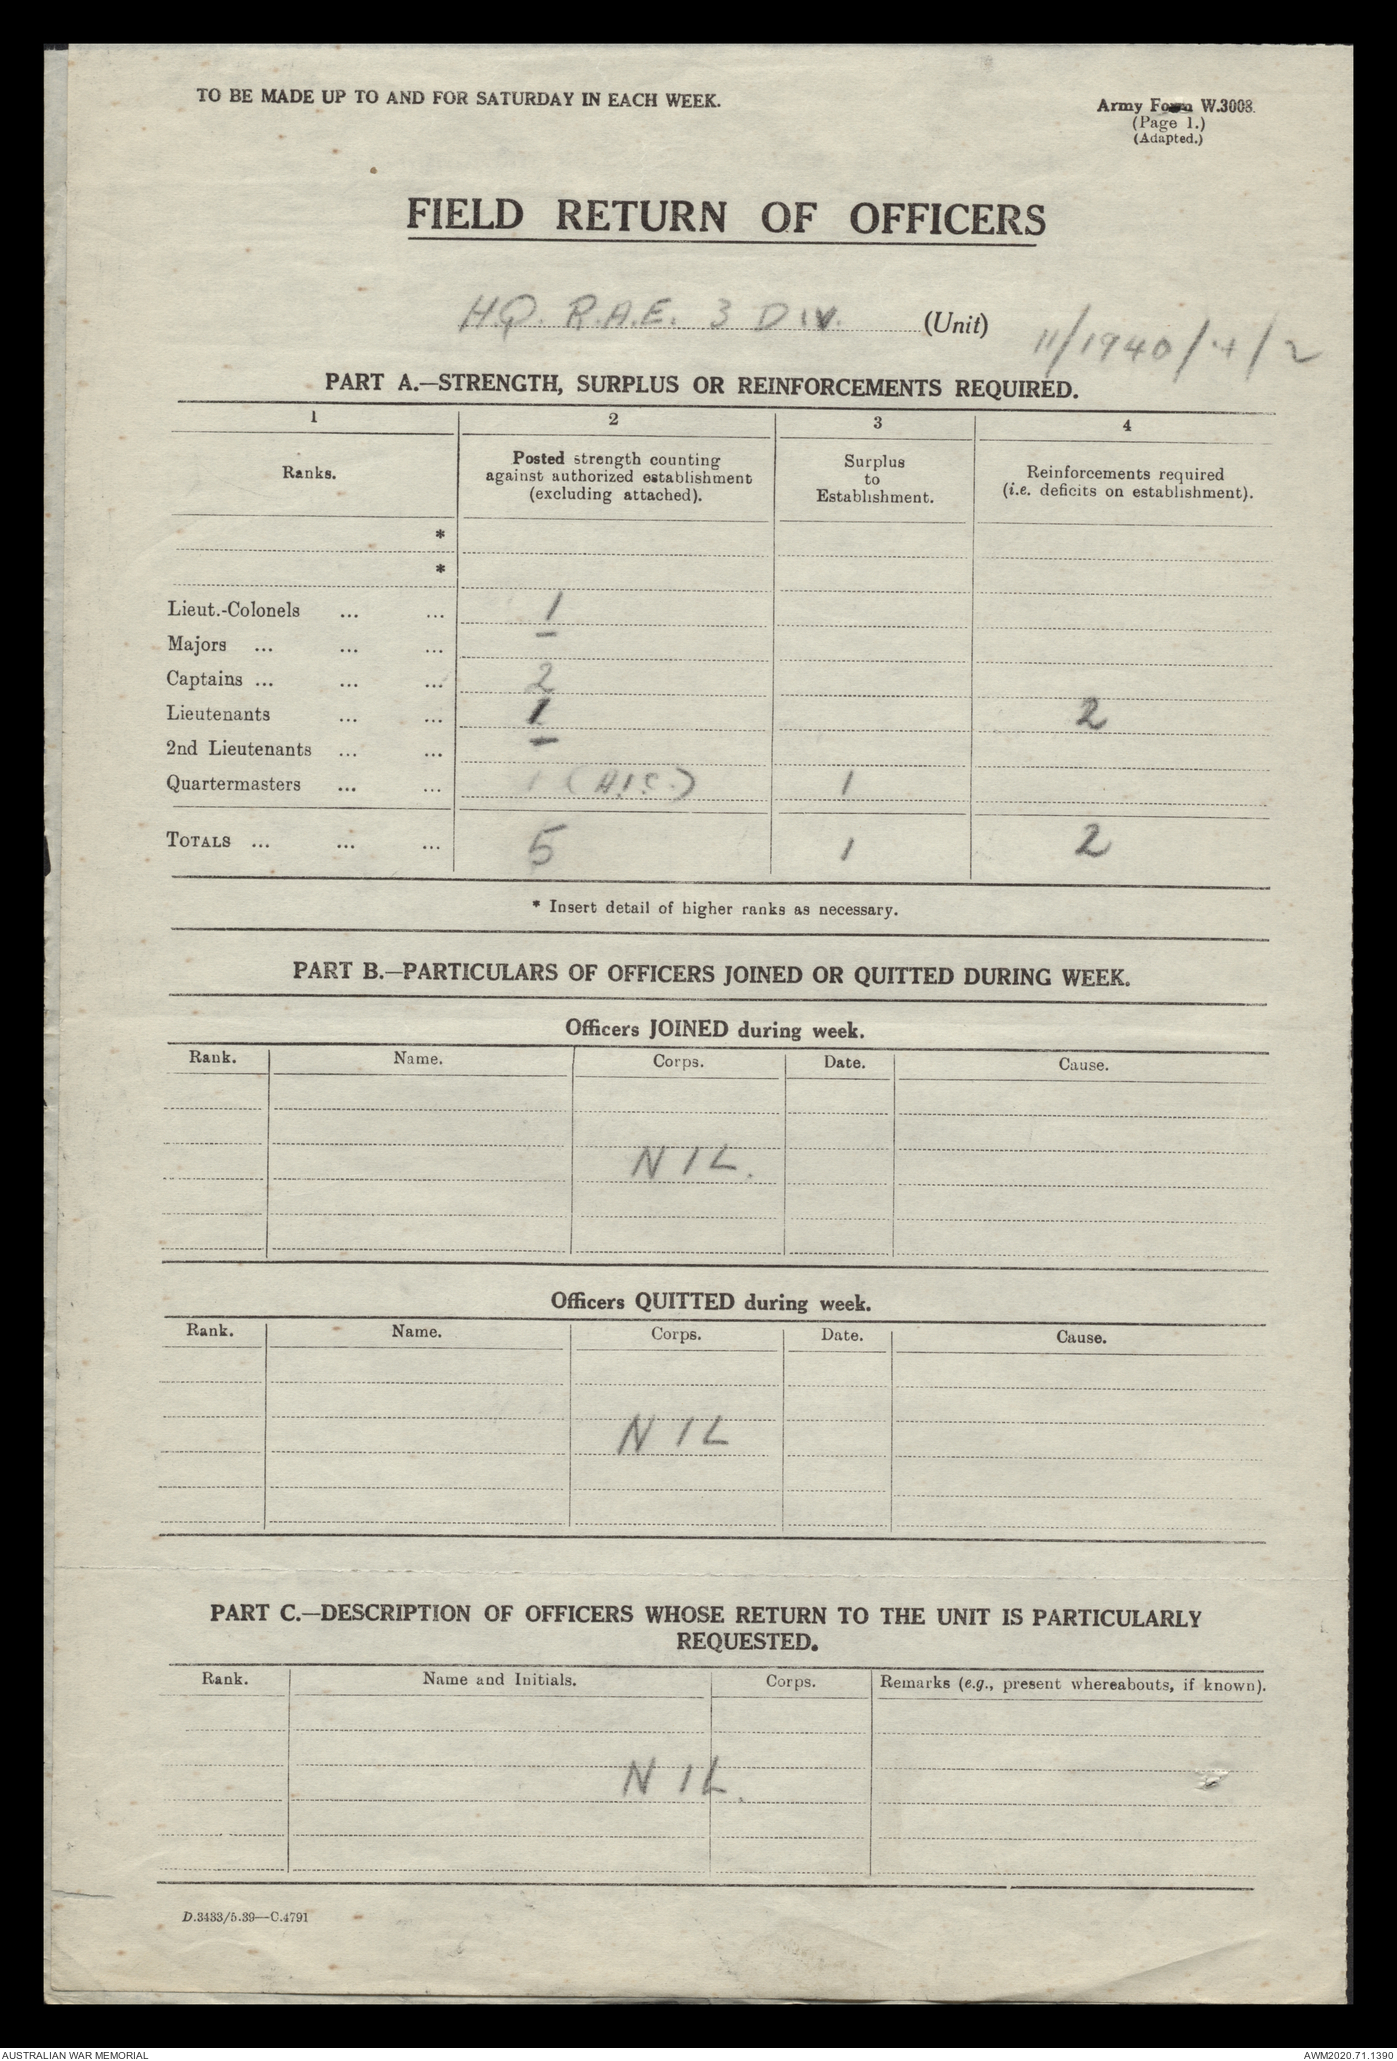 TO BE MADE UP TO AND FOR SATURDAY IN EACH WEEK.
Army Form W.3008.
(Page 1.)
(Adapted.)
FIELD RETURN OF OFFICERS
HQ. R.A.E. 3 DIV. (Unit)
11/1940/4/2
PART A.—STRENGTH, SURPLUS OR REINFORCEMENTS REQUIRED.
1 2 3 4
Ranks.
Posted strength counting
against authorized establishment
(excluding attached).
Surplus
to
Establishment.
Reinforcements required
(i.e. deficits on establishment).
*
*
Lieut.-Colonels ... ... 1
Majors ... ... ... —
Captains ... ... ... 2
Lieutenants ... ... 1 2
2nd Lieutenants ... ... —
Quartermasters ... ... 1 (A.I.C.) 1
TOTALS ... ... ... 5 1 2
* Insert detail of higher ranks as necessary.
PART B.—PARTICULARS OF OFFICERS JOINED OR QUITTED DURING WEEK.
Officers JOINED during week.
Rank. Name. Corps. Date. Cause.
NIL.
Officers QUITTED during week.
Rank. Name. Corps. Date. Cause.
NIL
PART C.—DESCRIPTION OF OFFICERS WHOSE RETURN TO THE UNIT IS PARTICULARLY
REQUESTED.
Rank. Name and Initials. Corps. Remarks (e.g., present whereabouts, if known).
NIL.
D.3433/5.39—C.4791
AUSTRALIAN WAR MEMORIAL
AWM2020.71.1390